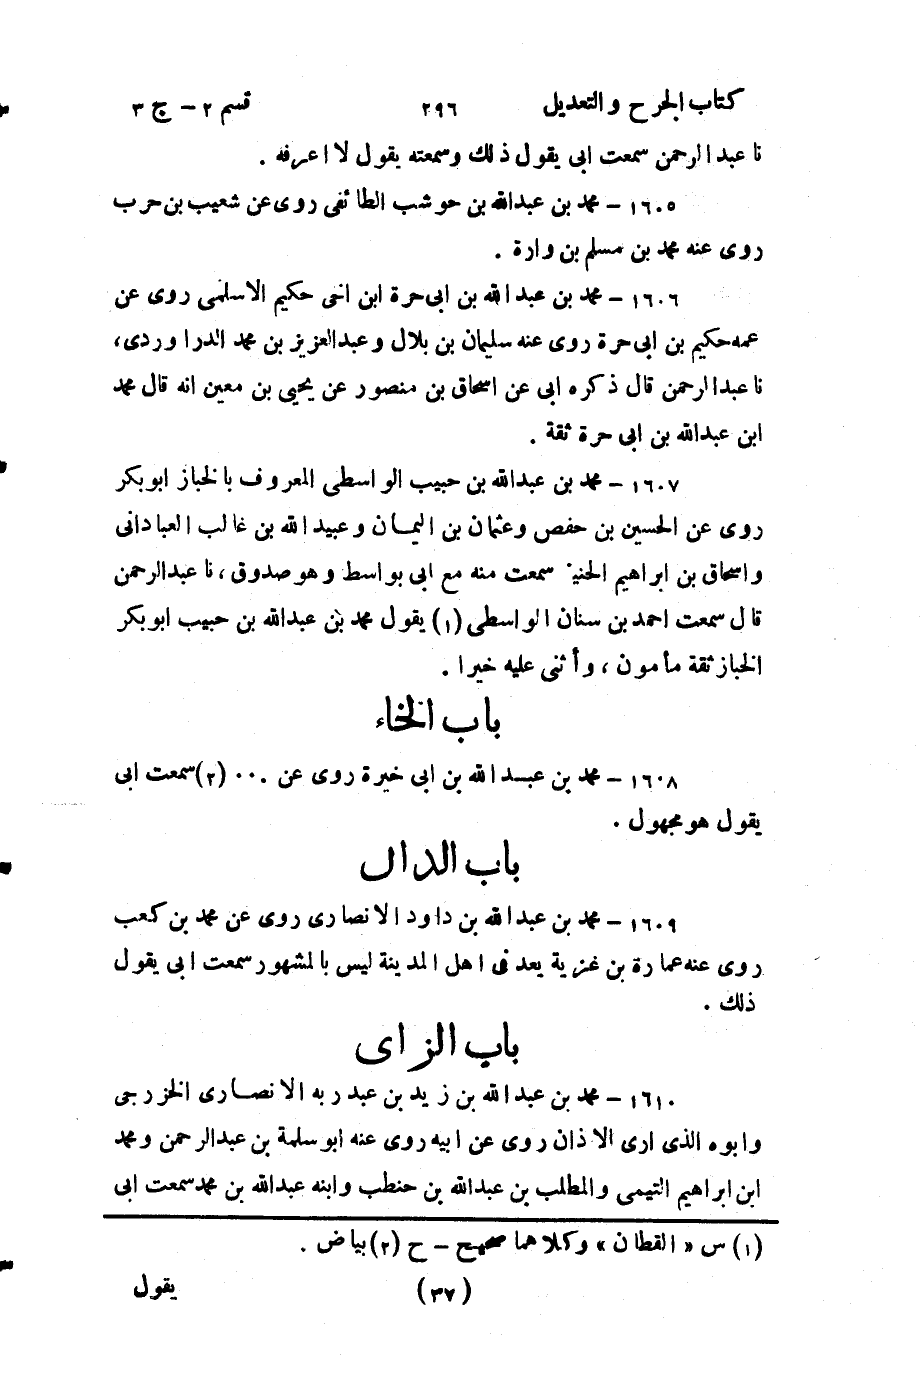 كتاب الجرح والتعديل ٢٩٦ قسم ٢ - ج ٣
نا عبد الرحمن سمعت ابى يقول ذلك وسمعته يقول لا اعرفه .
١٦٠٥ - محمد بن عبدالله بن حوشب الطائفى روى عن شعيب بن حرب
روى عنه محمد بن مسلم بن وارة .
١٦٠٦ - محمد بن عبد الله بن ابى حرة ابن اخى حكيم الاسلمى روى عن
عمه حكيم بن ابى حرة روى عنه سليمان بن بلال وعبدالعزيز بن محمد الدراوردى،
نا عبدالرحمن قال ذكره ابى عن اسحاق بن منصور عن يحيى بن معين انه قال محمد
ابن عبدالله بن ابى حرة ثقة .
١٦٠٧ - محمد بن عبدالله بن حبيب الواسطى المعروف بالخباز ابوبكر
روى عن الحسين بن حفص وعثمان بن اليمان وعبيد الله بن غالب العبادانى
واسحاق بن ابراهيم سمعت منه مع ابى بواسط وهو صدوق، نا عبدالرحمن
قال سمعت احمد بن سنان الواسطى (١) يقول محمد بن عبدالله بن حبيب ابوبكر
الخباز ثقة مأمون، وأثنى عليه خيرا .
باب الخاء
١٦٠٨ - محمد بن عبد الله بن ابى خيرة روى عن ... (٢) سمعت ابى
يقول هو مجهول .
باب الدال
١٦٠٩ - محمد بن عبد الله بن داود الانصارى روى عن محمد بن كعب
روى عنه عمارة بن غزية يعد فى اهل المدينة ليس بالمشهور سمعت ابى يقول
ذلك .
باب الزاى
١٦١٠ - محمد بن عبدالله بن زيد بن عبد ربه الانصارى الخزرجى
وابوه الذى ارى الاذان روى عن ابيه روى عنه ابو سلمة بن عبدالرحمن ومحمد
ابن ابراهيم التيمى والمطلب بن عبدالله بن حنطب وابنه عبدالله بن محمد سمعت ابى
(١) س « القطان » وكلاهما صحيح - ح (٢) بياض .
(٣٧) يقول